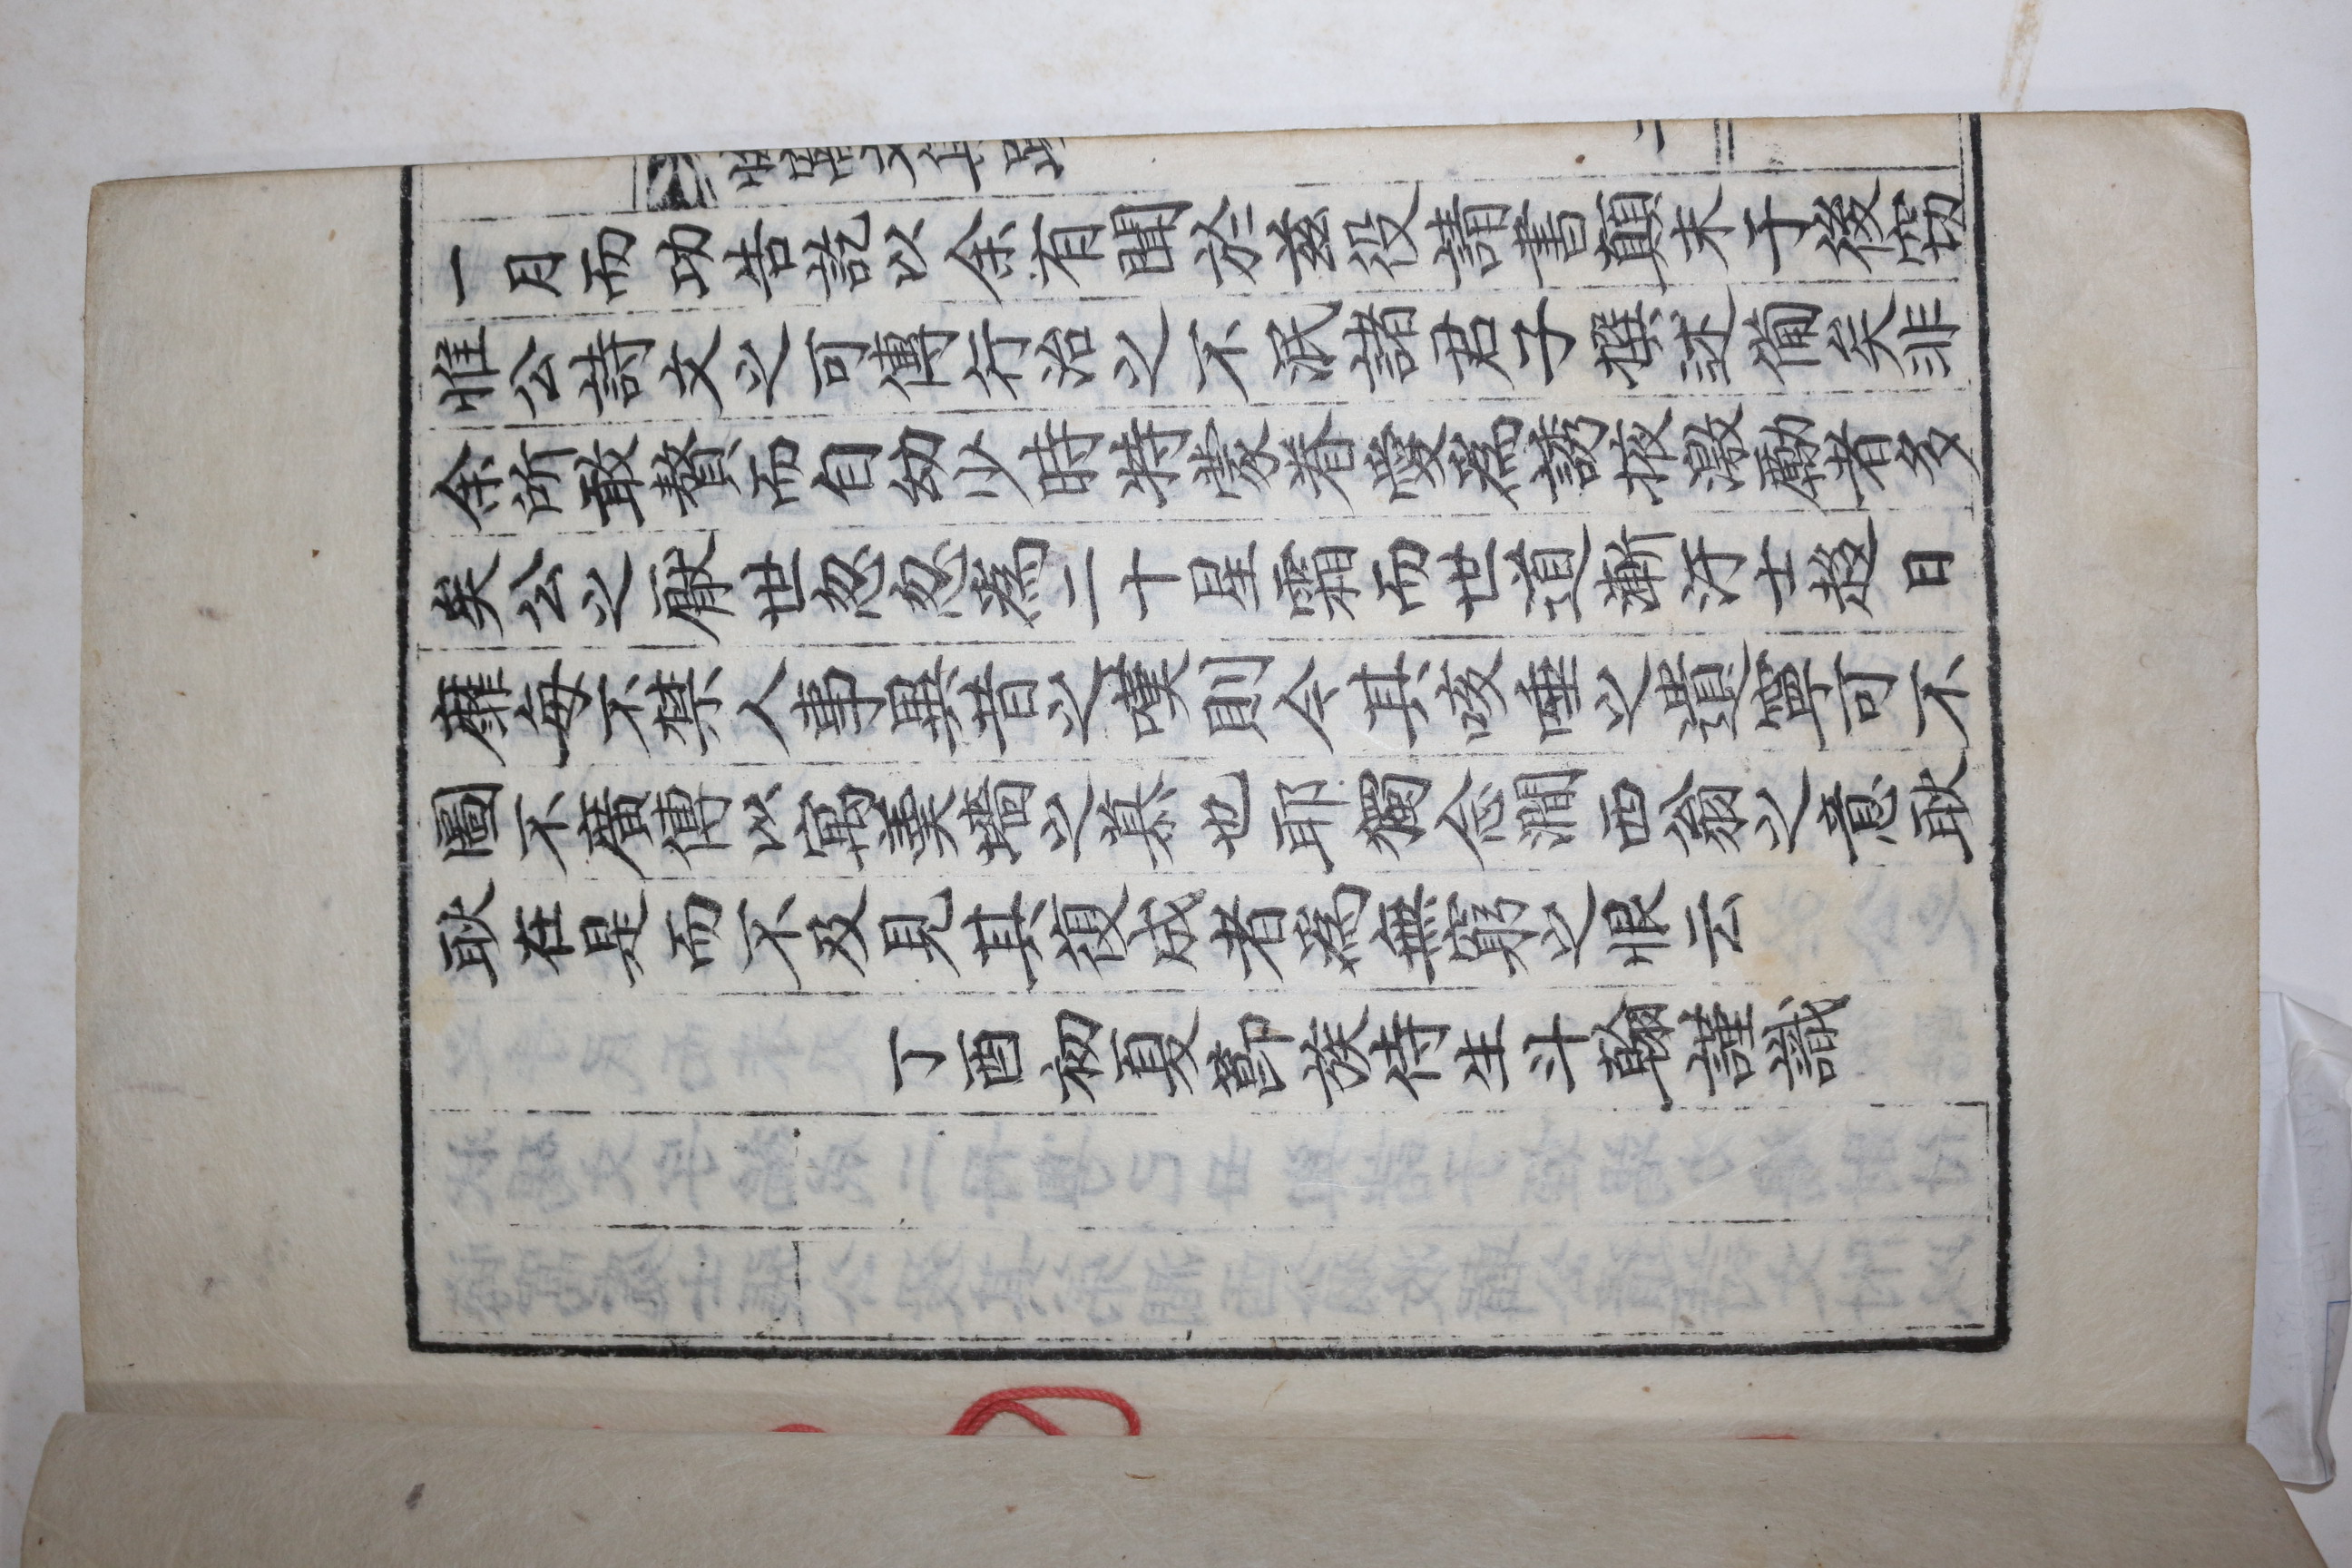 一月而功告訖以余有聞於玆役請書顛末于後竊
惟公詩文之可傳行治之不泯諸君子撰述備矣非
余所敢贅而自幼少時特蒙眷愛爲誘掖激勵者多
矣公之厭世忽忽爲二十星霜而世道漸汙士趍日
靡每不禁人事異昔之嘆則今其咳唾之遺寧可不
圖不廣傳以寓羹墻之慕也耶獨念澗西翁之意耿
耿在是而不及見其復成者爲無窮之恨云
丁酉初夏節族侍生斗翰謹識
窩文集
二